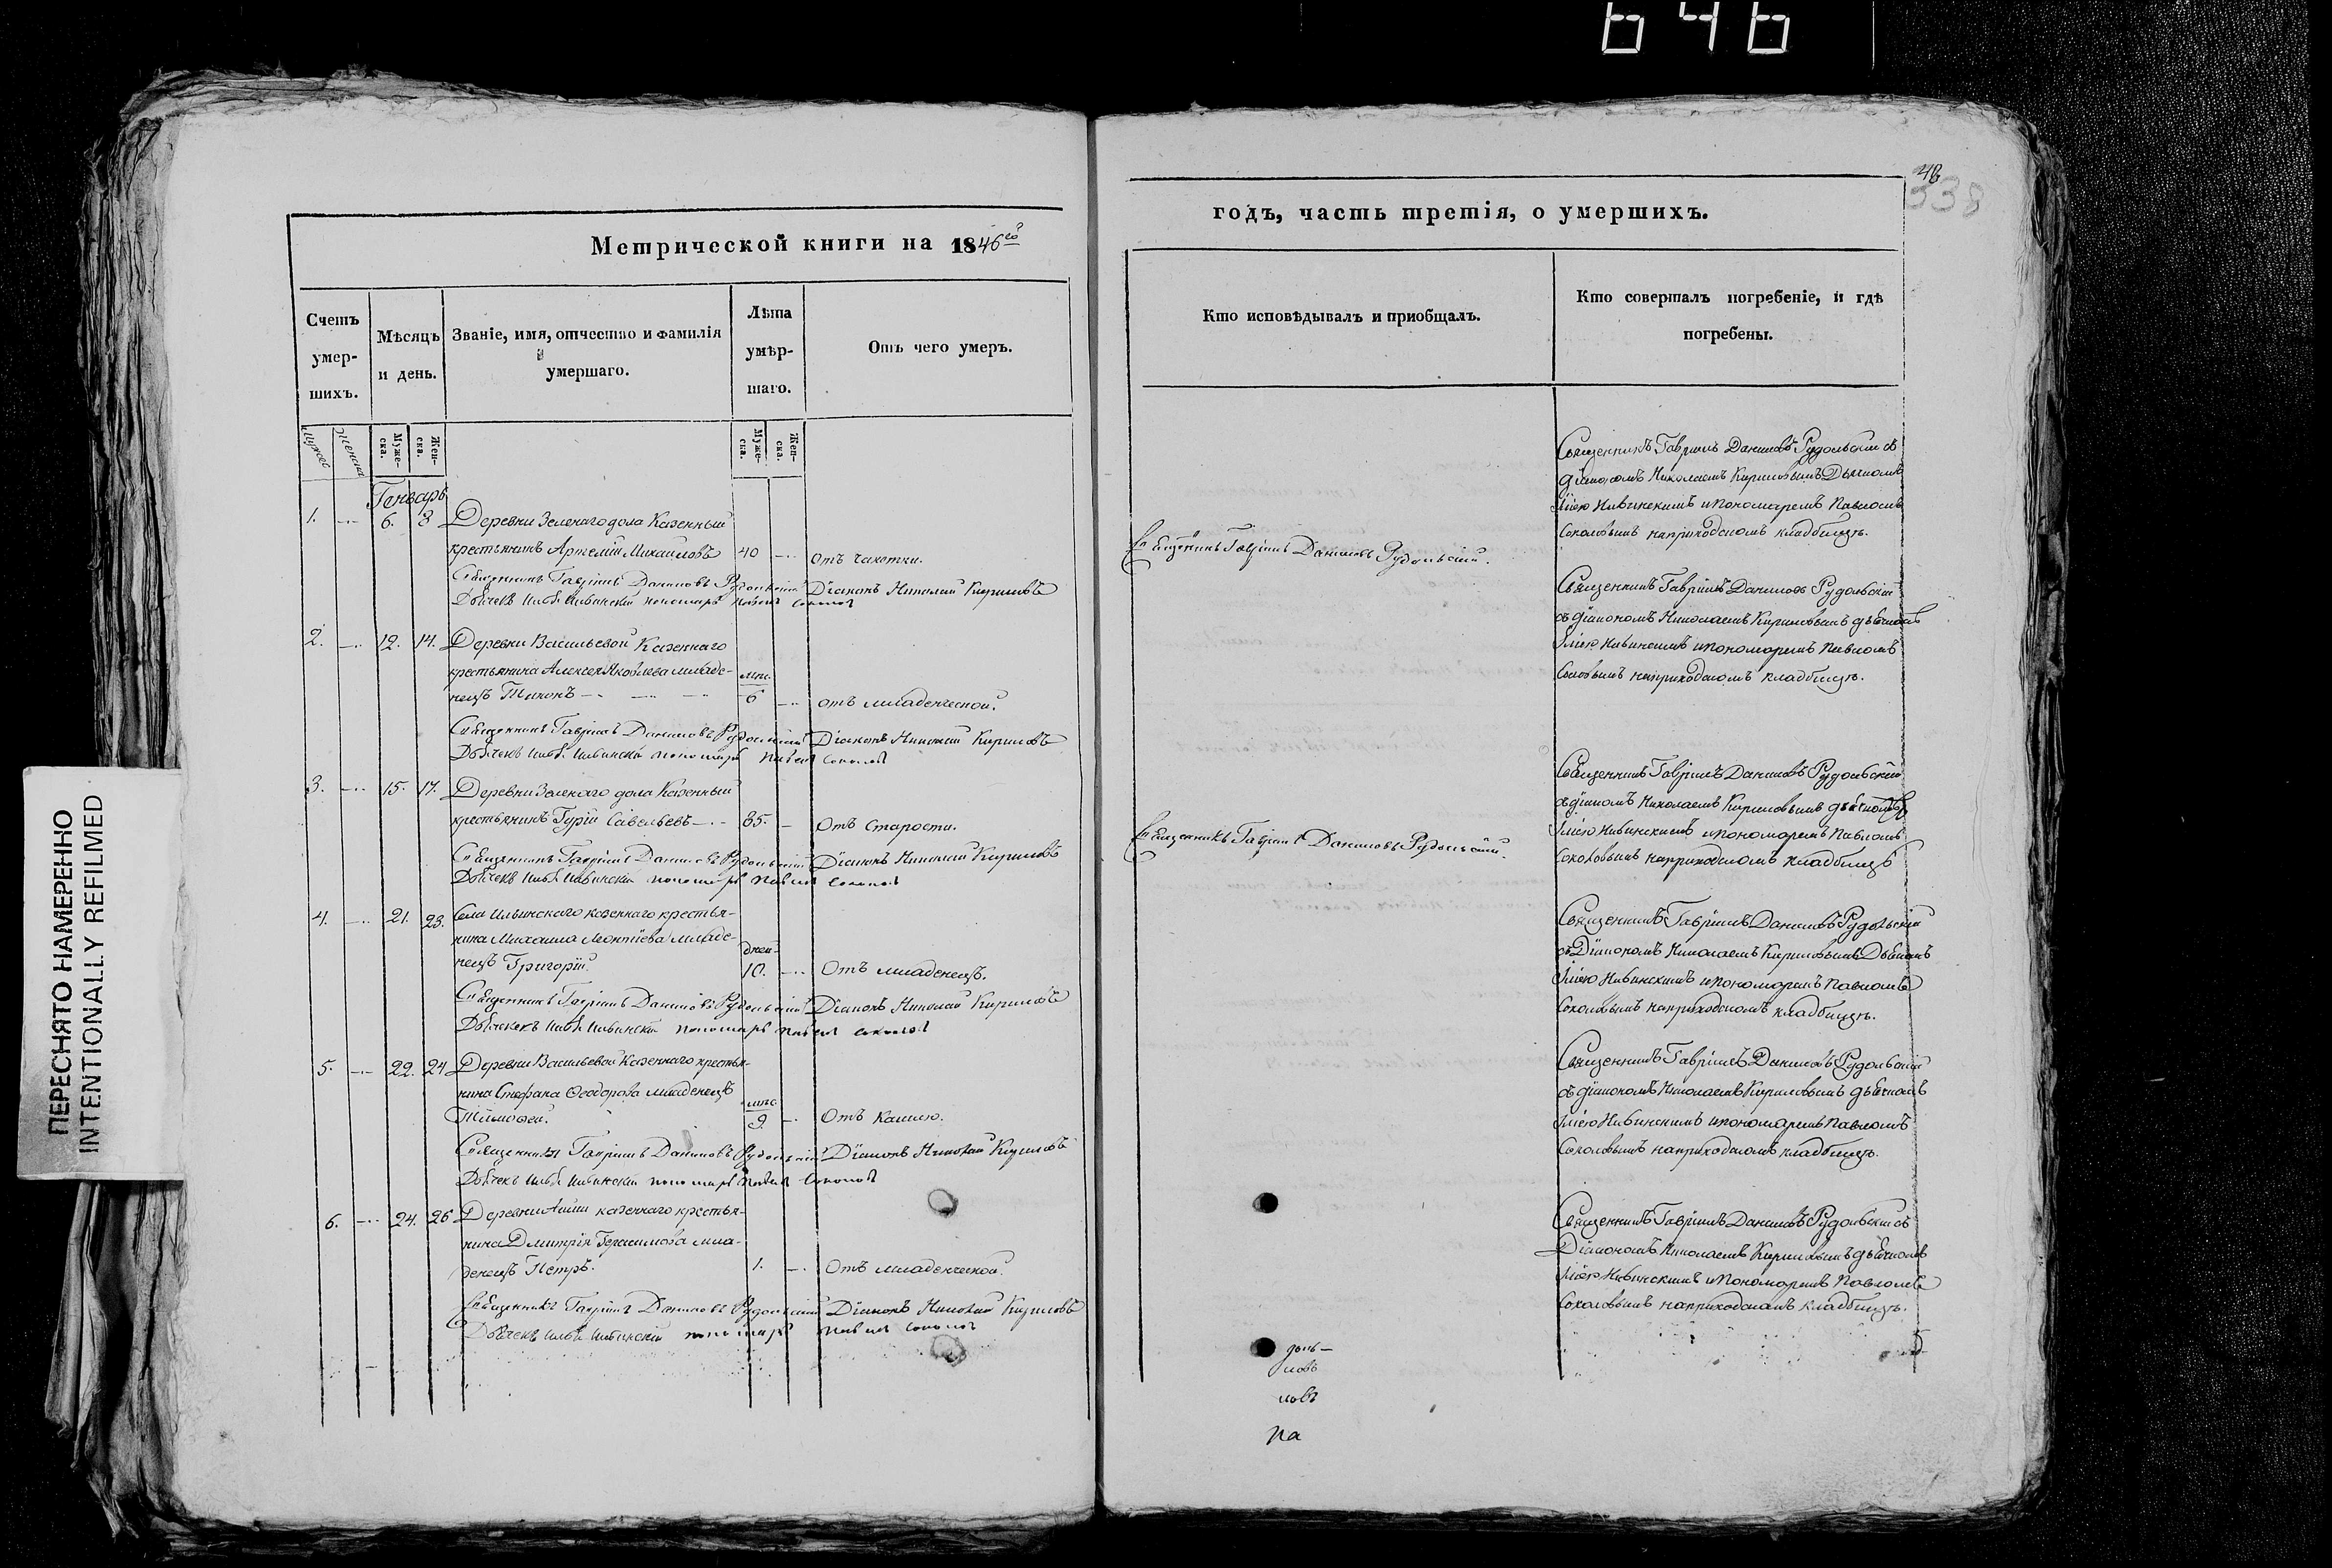 646
48
338
ПЕРЕСНЯТО НАМЕРЕННО
INTENTIONALLY REFILMED
Метрической книги на 1846го
Счетъ умер-шихъ.
Мѣсяцъ и день.
Званіе, имя, отчество и фамилія умершаго.
Лѣта умер-шаго.
Отъ чего умеръ.
Мужеска.
Женска.
Муже-ска.
Жен-ска.
Муже-ска.
Жен-ска.
Генварь
1. 6. 8 Деревни Зеленаго дола Казенный
крестьянинъ Артемій Михайловъ 40 Отъ чахотки.
Священникъ Гавріилъ Даниловъ Рудольскій Діаконъ Николай Кириловъ
Дьячекъ Илья Ильинскій пономарь Павелъ Соколов
2. 12. 14. Деревни Васильевой Казеннаго
крестьянина Алексея Яковлева младе-
нецъ Тихонъ мес. 6 отъ младенческой.
Священникъ Гавріилъ Даниловъ Рудольскій Діаконъ Николай Кириловъ
Дьячекъ Илья Ильинскій пономарь Павелъ Соколов
3. 15. 17. Деревни Зеленаго дола Казенный
крестьянинъ Гурій Савельевъ 85 Отъ старости.
Священникъ Гавріилъ Даниловъ Рудольскій Діаконъ Николай Кириловъ
Дьячекъ Илья Ильинскій пономарь Павелъ Соколов
4. 21. 23. Села Ильинскаго казеннаго крестья-
нина Михаила Леонтіева младе-
нецъ Григорій. дней 10. Отъ младенецъ.
Священникъ Гавріилъ Даниловъ Рудольскій Діаконъ Николай Кириловъ
Дьячекъ Илья Ильинскій пономарь Павелъ Соколов
5. 22. 24 Деревни Васильевой Казеннаго крестья-
нина Стефана Ѳеодорова младенецъ
Тимоѳей. мес 9. Отъ Кашлю.
Священникъ Гавріилъ Даниловъ Рудольскій Діаконъ Николай Кириловъ
Дьячекъ Илья Ильинскій пономарь Павелъ Соколов
6. 24. 26 Деревни казеннаго крестья-
нина Дмитрія Герасимова мла-
денецъ Петръ. 1. Отъ младенческой.
Священникъ Гавріилъ Даниловъ Рудольскій Діаконъ Николай Кириловъ
Дьячекъ Илья Ильинскій пономарь Павелъ Соколов
годъ, часть третія, о умершихъ.
Кто исповѣдывалъ и пріобщалъ.
Кто совершалъ погребеніе, и гдѣ погребены.
Священникъ Гавріилъ Даниловъ Рудольскій.
Священникъ Гавріилъ Даниловъ Рудольскій.
Священникъ Гавріилъ Даниловъ Рудольскій съ
діакономъ Николаемъ Кириловымъ Дьячкомъ
Іліею Ильинскимъ и пономаремъ Павломъ
Соколовымъ на приходскомъ кладбищѣ.
Священникъ Гавріилъ Даниловъ Рудольскій
съ діакономъ Николаемъ Кириловымъ дьячкомъ
Іліею Ильинскимъ и пономаремъ Павломъ
на приходскомъ кладбищѣ.
Священникъ Гавріилъ Даниловъ Рудольскій
съ Николаемъ Кириловымъ дьячкомъ
Іліею Ильинскимъ и пономаремъ Павломъ
Соколовымъ на приходскомъ кладбищѣ
Священникъ Гавріилъ Даниловъ Рудольскій
съ Діакономъ Николаемъ Кириловымъ Дьячкомъ
Іліею Ильинскимъ и пономаремъ Павломъ
Соколовымъ на приходскомъ кладбищѣ.
Священникъ Гавріилъ Даниловъ Рудольскій
съ діакономъ Николаемъ Кириловымъ дьячкомъ
Іліею Ильинскимъ и пономаремъ Павломъ
Соколовымъ на приходскомъ кладбищѣ.
Священникъ Гавріилъ Даниловъ Рудольскій съ
Діакономъ Николаемъ Кириловымъ дьячкомъ
Іліею Ильинскимъ и пономаремъ Павломъ
Соколовымъ на приходскомъ кладбищѣ.
ловъ
на